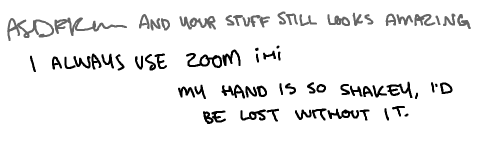 ASDFKm AND YOUR STUFF STILL LOOKS AMAZING
I ALWAYS USE ZOOM iHi
MY HAND IS SO SHAKEY, I'D
BE LOST WITHOUT IT.